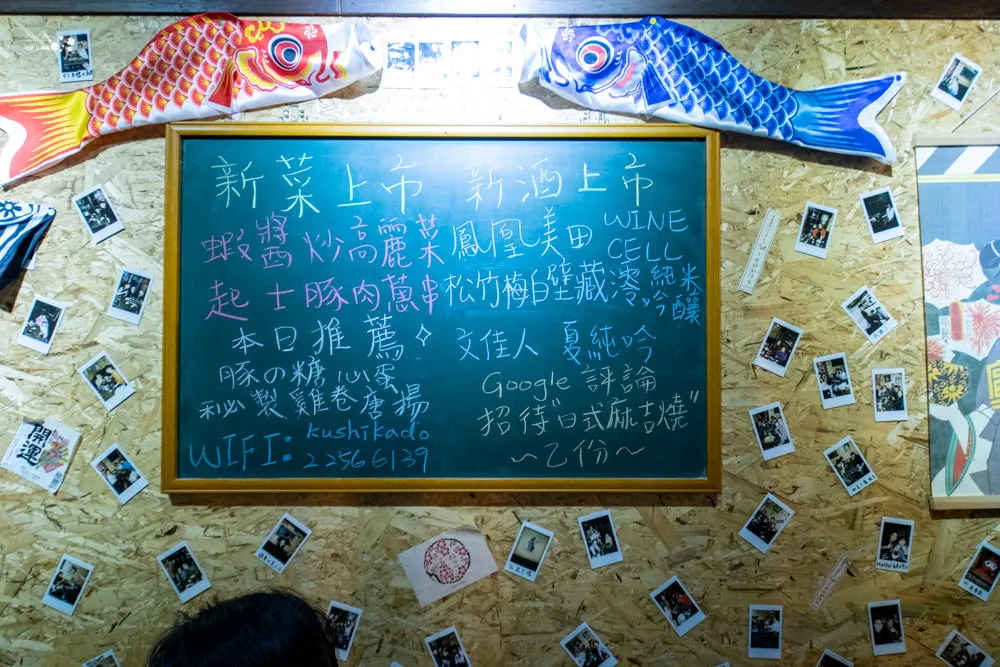 新菜上市
蝦醬炒高麗菜
起士豚肉蔥串
本日推薦
豚の糖心蛋
秘製雞卷唐揚
WIFI: kushikado
22566139
新酒上市
鳳凰美田 WINE CELL
松竹梅白壁藏澪純米吟釀
文佳人 夏純吟
Google 評論
招待"日式麻吉燒"
~乙份~
開運